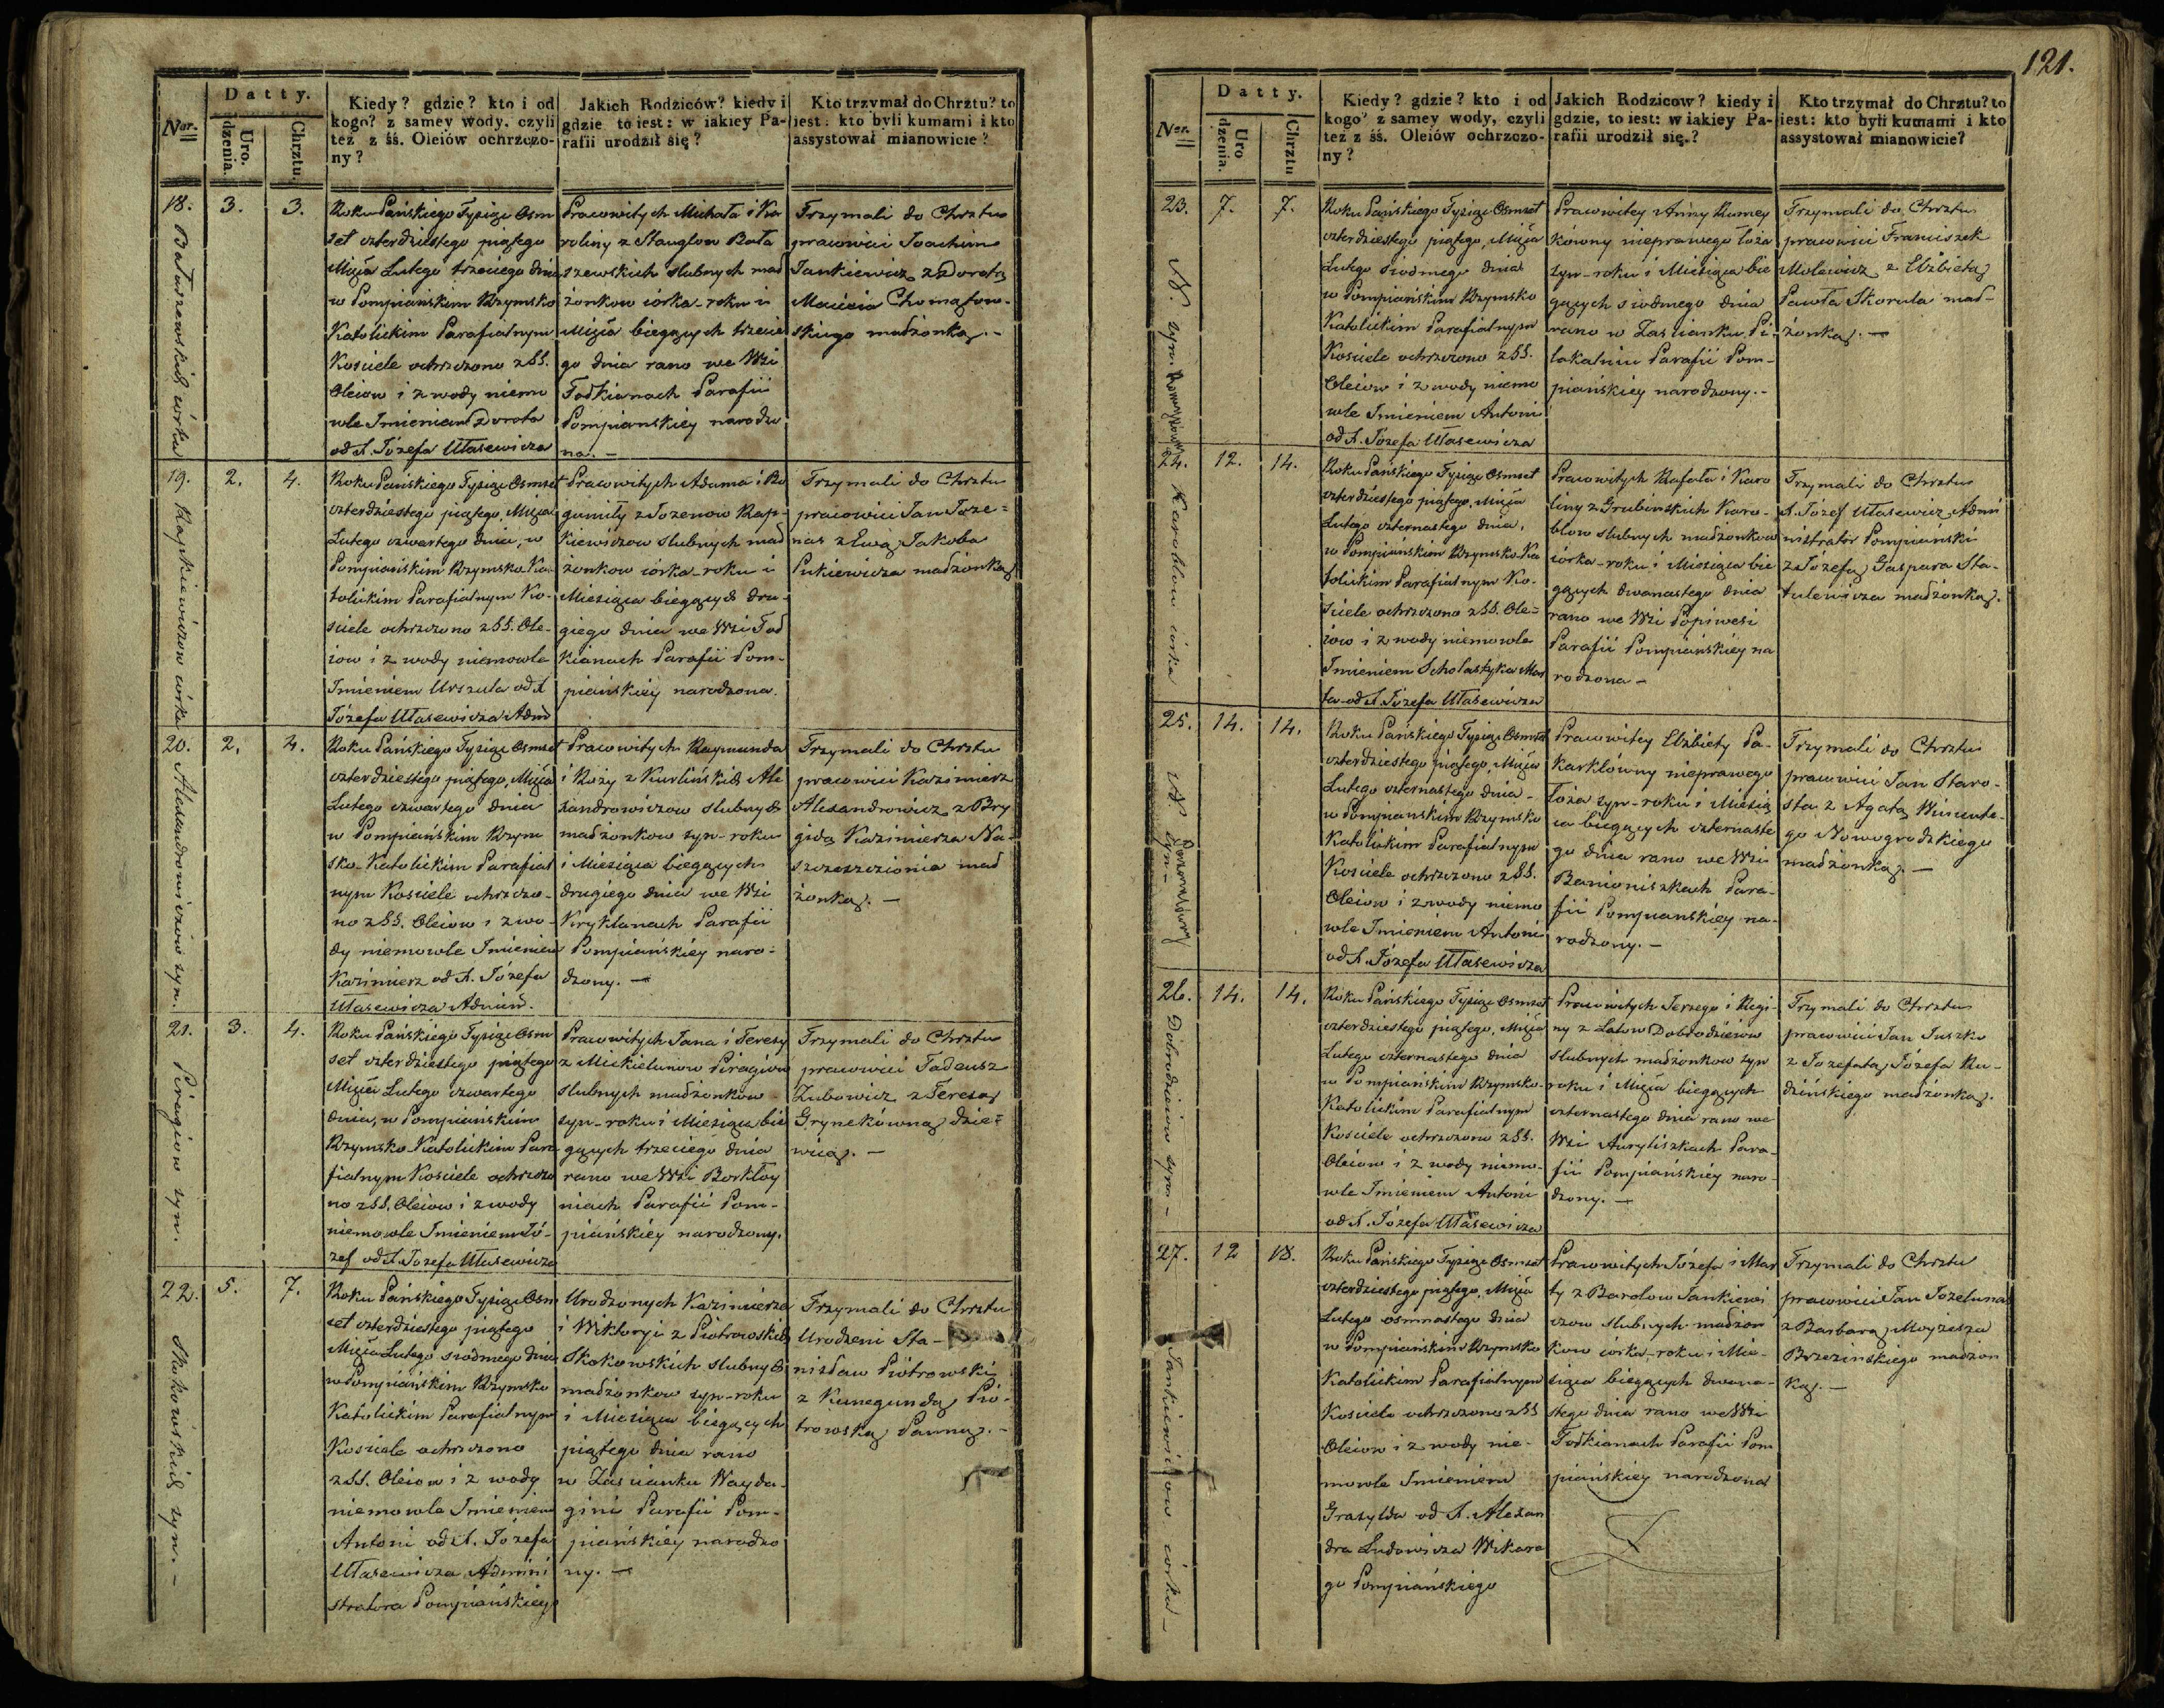 121.
Datty.
Nor.
Urodzenia.
Chrztu.
Kiedy? gdzie? kto i od
kogo? z samey wody, czyli
też z śś. Oleiów ochrzczo-
ny?
Jakich Rodziców? kiedy i
gdzie to iest: w iakiey Pa-
rafii urodził się?
Kto trzymał do Chrztu? to
iest: kto byli kumami i kto
assystował mianowicie?
18.
3.
3.
Bałaszewskich córka
Roku Pańskiego Tysiąc Osm
set czterdziestego piątego
Mięca Lutego trzeciego dnia
w Pompiańskim Rzymsko
Katolickim Parafialnym
Kościele ochrzczono z SS.
Oleiow i z wody niemo
wle Imieniem Dorota
od X. Józefa Ułasewicza
Pracowitych Michała i Ka
roliny z Stauglow Bała
szewskich slubnych mał
żonkow córka roku i
Mięca bieżących trzecie
go dnia rano we Wsi
Todkianach Parafii
Pompianskiey narodzo
na. -
Trzymali do Chrztu
pracowici Joachim
Jankiewicz z Dorotą
Macieia Chomątow-
skiego małżonką. -
19.
2.
4.
Rapkiewiczow córka
Roku Pańskiego Tysiąc Osmset
czterdziestego piątego, Mięca
Lutego czwartego dnia, w
Pompiańskim Rzymsko Ka-
tolickim Parafialnym Ko-
sciele ochrzczono z SS. Ole-
iow i z wody niemowle
Imieniem Urszula od X
Józefa Ułasewicza Adm
Pracowitych Adama i Ro
gumiły z Jozenow Rap-
kiewiczow slubnych mał
żonkow córka - roku i
Miesiąca bieżących dru-
giego dnia we Wsi Tod
kianach Parafii Pom-
piańskiey narodzona.
Trzymali do Chrztu
pracowici Jan Joze-
nas z Ewą Jakoba
Pukiewicza małżonką
20.
2.
4.
Alexandrowiczow syn.
Roku Pańskiego Tysiąc Osmset
czterdziestego piątego, Mięca
Lutego czwartego dnia
w Pompiańskim Rzym
sko-Katolickim Parafial
nym Kosciele ochrzczo-
no z SS. Oleiow i z wo-
dy niemowle Imieniem
Kazimierz od X. Józefa
Ułasewicza Admin.
Pracowitych Raymunda
i Roży z Kurlińskich Ale
xandrowiczow slubnych
małżonkow syn - roku
i Miesiąca bieżących
drugiego dnia we Wsi
Kryklanach Parafii
Pompiańskiey naro-
dzony. -
Trzymali do Chrztu
pracowici Kazimierz
Alexandrowicz z Bry
gidą Kazimierza Na-
szczeszczionia mał
żonką. -
21.
3.
4.
Piragiow syn.
Roku Pańskiego Tysiąc Osm
set czterdziestego piątego
Mięca Lutego czwartego
dnia, w Pompiańskim
Rzymsko-Katolickim Para
fialnym Kosciele ochrzczo
no z SS. Oleiow i z wody
niemowle Imieniem Jó-
zef od X. Józefa Ułasewicza
Pracowitych Jana i Teresy
z Mickielunow Piragiow
slubnych małżonkow
syn - roku i Miesiąca bie
żących trzeciego dnia
rano we Wsi Borkłoy
niach Parafii Pom-
piańskiey narodzony.
Trzymali do Chrztu
pracowici Tadeusz
Zubowicz z Teresą
Grynekówną dzie-
wicą. -
22.
5.
7.
Skokowskich syn. -
Roku Pańskiego Tysiąc Osm
set czterdziestego piątego
Mięca Lutego siodmego dnia
w Pompiańskim Rzymsko
Katolickim Parafialnym
Kosciele ochrzczono
z SS. Oleiow i z wody
niemowle Imieniem
Antoni od X. Józefa
Ułasewicza Admini
stratora Pompiańskiego
Urodzonych Kazimierza
i Wiktoryi z Piotrowskich
Skokowskich slubnych
małżonkow syn - roku
i Miesiąca bieżących
piątego dnia rano
w Zascianku Wayda-
gini Parafii Pom-
piańskiey narodzo
ny. -
Trzymali do Chrztu
Urodzeni Sta-
nisław Piotrowski
z Kunegundą Pio-
trowską Panną. -
Datty.
Nor.
Urodzenia.
Chrztu
Kiedy? gdzie? kto i od
kogo? z samey wody, czyli
też z śś. Oleiów ochrzczo-
ny?
Jakich Rodzicow? kiedy i
gdzie, to iest: w iakiey Pa-
rafii urodził się.?
Kto trzymał do Chrztu? to
iest: kto byli kumami i kto
assystował mianowicie?
23.
7.
7.
N. syn
Roku Pańskiego Tysiąc Osmset
czterdziestego piątego, Mięca
Lutego siodmego dnia
w Pompiańskim Rzymsko
Katolickim Parafialnym
Kosciele ochrzczono z SS.
Oleiow i z wody niemo
wle Imieniem Antoni
od X. Józefa Ułasewicza
Pracowitey Anny Rumey
kówny nieprawego łoża
syn - roku i Miesiąca bie
żących siodmego dnia
rano w Zascianku Pi-
lokalniu Parafii Pom-
pianskiey narodzony. -
Trzymali do Chrztu
pracowici Franciszek
Molewicz z Elżbietą
Pawła Skorula mał-
żonką. -
24.
12.
14.
Karoblow córka
Roku Pańskiego Tysiąc Osmset
czterdziestego piątego, Mięca
Lutego czternastego dnia,
w Pompiańskim Rzymsko-Ka
tolickim Parafialnym Ko-
sciele ochrzczono z SS. Ole-
iow i z wody niemowle
Imieniem Scholastyka Mar
ta od X. Józefa Ułasewicza
Pracowitych Rafała i Karo
liny z Grubinskich Karo-
blow slubnych małżonkow
córka - roku i Miesiąca bie
żących dwonastego dnia
rano we Wsi Popiwesi
Parafii Pompiańskiey na
rodzona -
Trzymali do Chrztu
X. Józef Ułasewicz Admi
nistrator Pompiański
z Józefą Gaspara Sta-
tulewicza małżonką.
25.
14.
14.
N. syn -
Roku Pańskiego Tysiąc Osmset
czterdziestego piątego, Mięca
Lutego czternastego dnia -
w Pompianskim Rzymsko
Katolickim Parafialnym
Kosciele ochrzczono z SS.
Oleiow i z wody niemo
wle Imieniem Antoni
od X. Józefa Ułasewicza
Pracowitey Elżbiety Pa-
karklówny nieprawego
łoża syn - roku i Miesią
ca bieżących czternaste
go dnia rano we Wsi
Banioniszkach Para-
fii Pompianskiey na-
rodzony. -
Trzymali do Chrztu
pracowici Jan Staro-
sta z Agatą Wincente-
go Nowogrodzkiego
małżonką. -
26.
14.
14.
Dobrodzieiow syn -
Roku Pańskiego Tysiąc Osmset
czterdziestego piątego, Mięca
Lutego czternastego dnia
w Pompiańskim Rzymsko-
Katolickim Parafialnym
Kosciele ochrzczono z SS.
Oleiow i z wody niemo-
wle Imieniem Antoni
od X. Józefa Ułasewicza
Pracowitych Jerzego i Regi-
ny z Łatow Dobrodzieiow
slubnych małżonkow syn
roku i Mięca bieżących
czternastego dnia rano we
Wsi Auryliszkach Para-
fii Pompiańskiey naro
dzony. -
Trzymali do Chrztu
pracowici Jan Juszko
z Jozefatą Józefa Ru-
dzińskiego małżonką.
27.
12
18.
Jankiewiczow córka -
Roku Pańskiego Tysiąc Osmset
czterdziestego piątego, Mięca
Lutego osmnastego dnia
w Pompiańskim Rzymsko
Katolickim Parafialnym
Kosciele ochrzczono z SS
Oleiow i z wody nie-
mowle Imieniem
Grasylda od X. Alexan
dra Ludowicza Wikare
go Pompiańskiego
Pracowitych Józefa i Mar
ty z Barolow Jankiewi
czow slubnych małżon
kow córka roku i Mie-
siąca bieżących dwona-
stego dnia rano we Wsi
Todkianach Parafii Pom
piańskiey narodzona
Trzymali do Chrztu
pracowici Jan Jozelunas
z Barbarą Moyzesza
Brzezinskiego małżon
ką. -